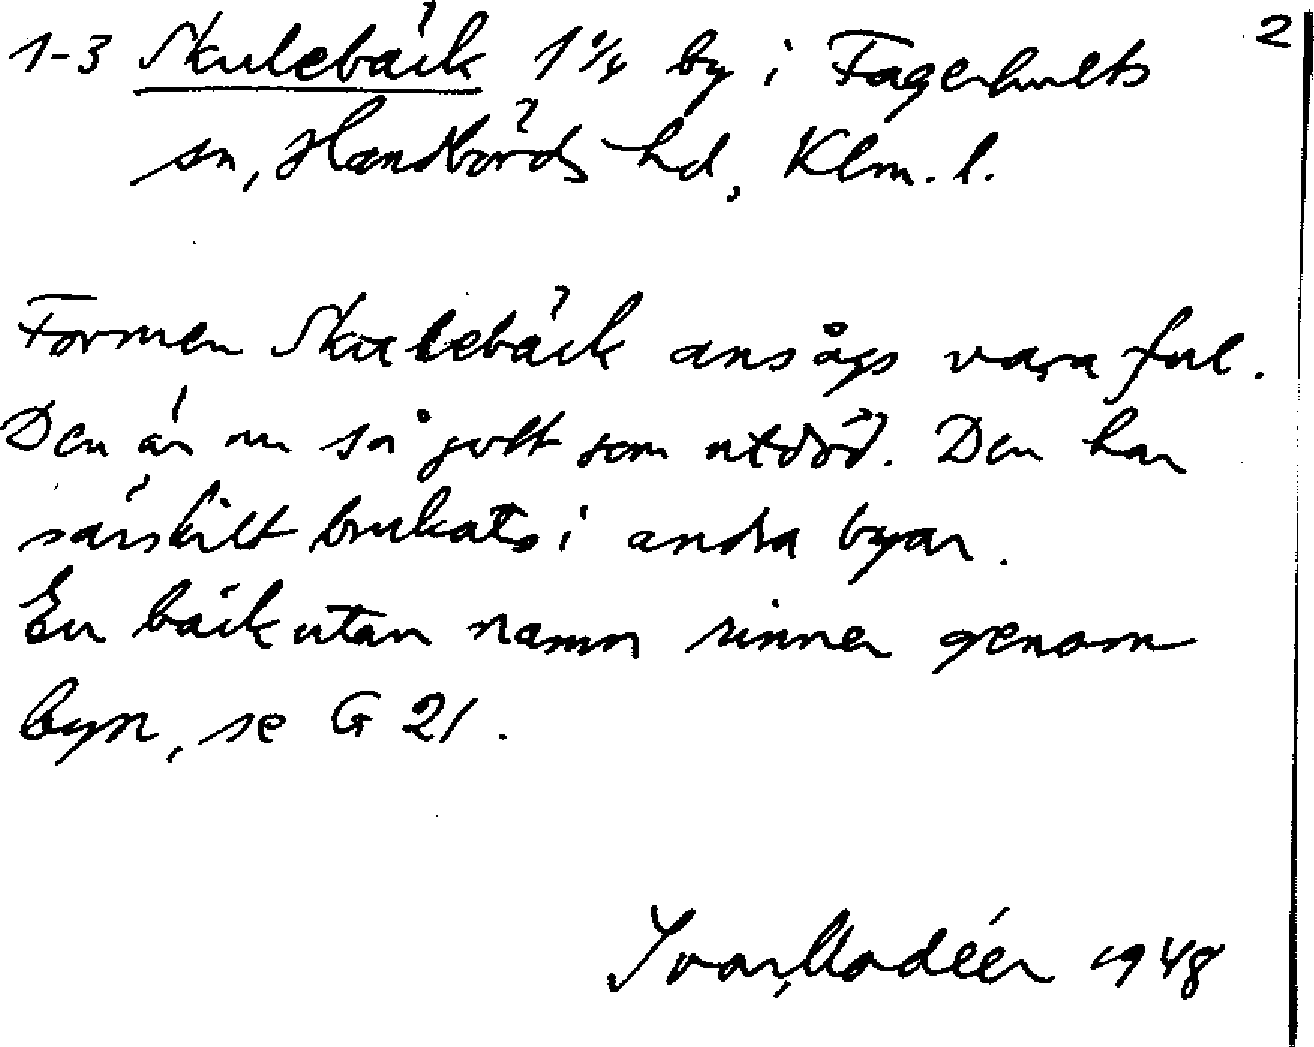 2
1-3 Skulebäck 1 1/4 by i Fagerhults
sn, Handbörds hd, Klm. l.
Formen Skulebäck ansågs vara ful.
Den är nu så gott som utdöd. Den har
särskilt brukats i andra byar.
En bäck utan namn rinner genom
byn, se G 21.
Ivar Modéer 1948